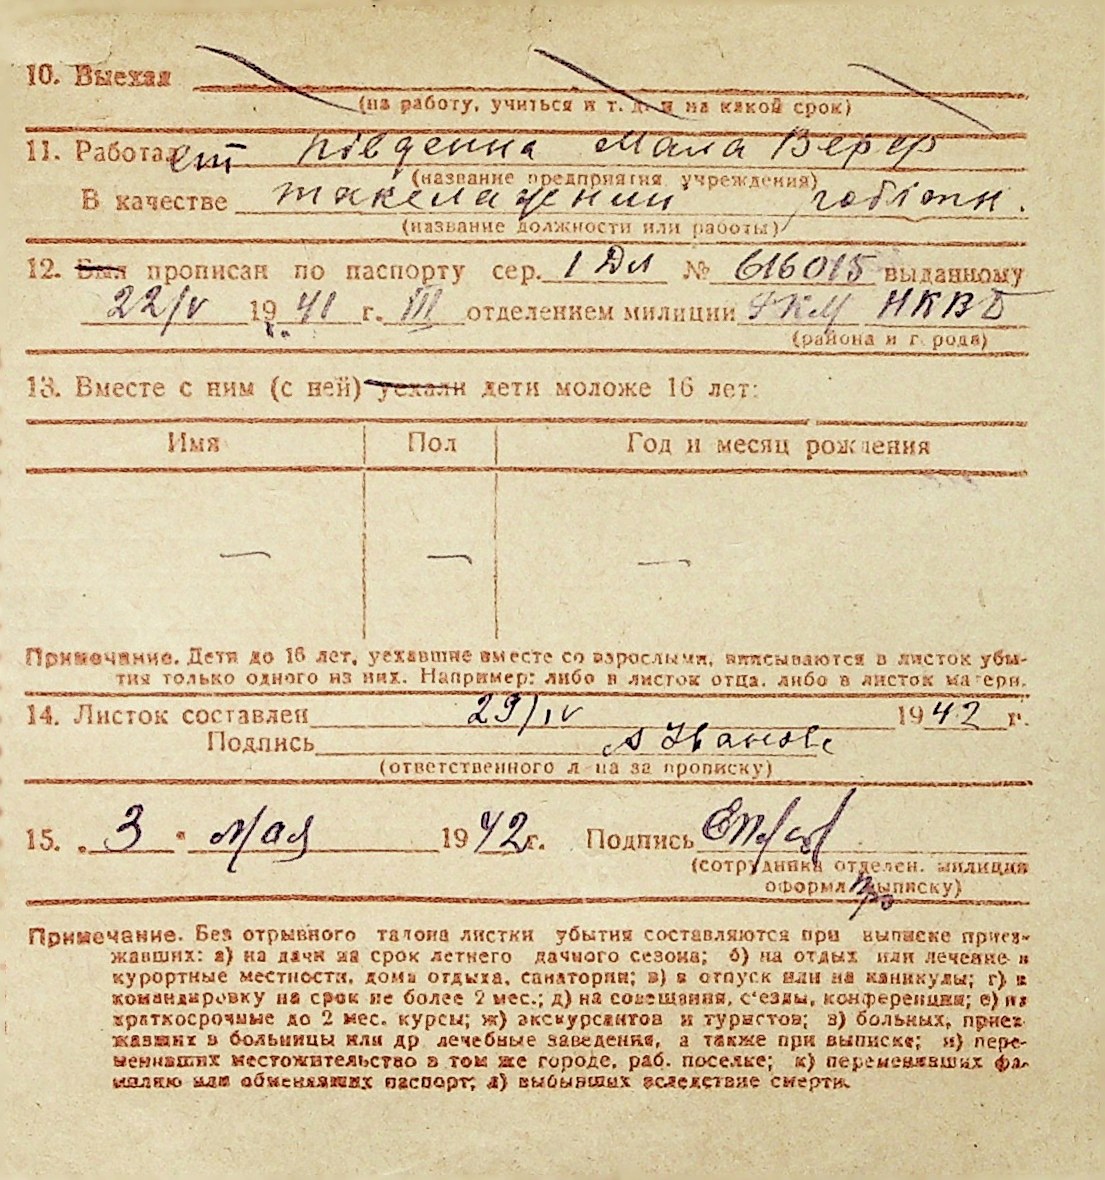 10. Выехал
(на работу, учиться и т. д. и на какой срок)
11. Работал ет Південна Мала Верф
(название предприятия, учреждения)
В качестве такелажений робітн.
(название должности или работы)
12. Был прописан по паспорту сер. 1 Дл № 616015 выданному
22/V 1941 г. III отделением милиции РКМ НКВД
(района и города)
13. Вместе с ним (с ней) уехали дети моложе 16 лет:
Имя Пол Год и месяц рождения
— — —
Примечание. Дети до 16 лет, уехавшие вместе со взрослыми, вписываются в листок убы-
тия только одного из них. Например: либо в листок отца, либо в листок матери.
14. Листок составлен 29/IV 1942 г.
Подпись А Іванов
(ответственного лица за прописку)
15. "3" Мая 1942 г. Подпись
(сотрудника отделен. милиции
оформл выписку)
Примечание. Без отрывного талона листки убытия составляются при выписке приез-
жавших: а) на дачи на срок летнего дачного сезона; б) на отдых или лечение в
курортные местности, дома отдыха, санатории; в) в отпуск или на каникулы; г) в
командировку на срок не более 2 мес.; д) на совещания, с'езды, конференции; е) на
краткосрочные до 2 мес. курсы; ж) экскурсантов и туристов; з) больных, приез-
жавших в больницы или др лечебные заведения, а также при выписке; и) пере-
менивших местожительство в том же городе, раб. поселке; к) переменивших фа-
милию или обменявших паспорт; л) выбывших вследствие смерти.